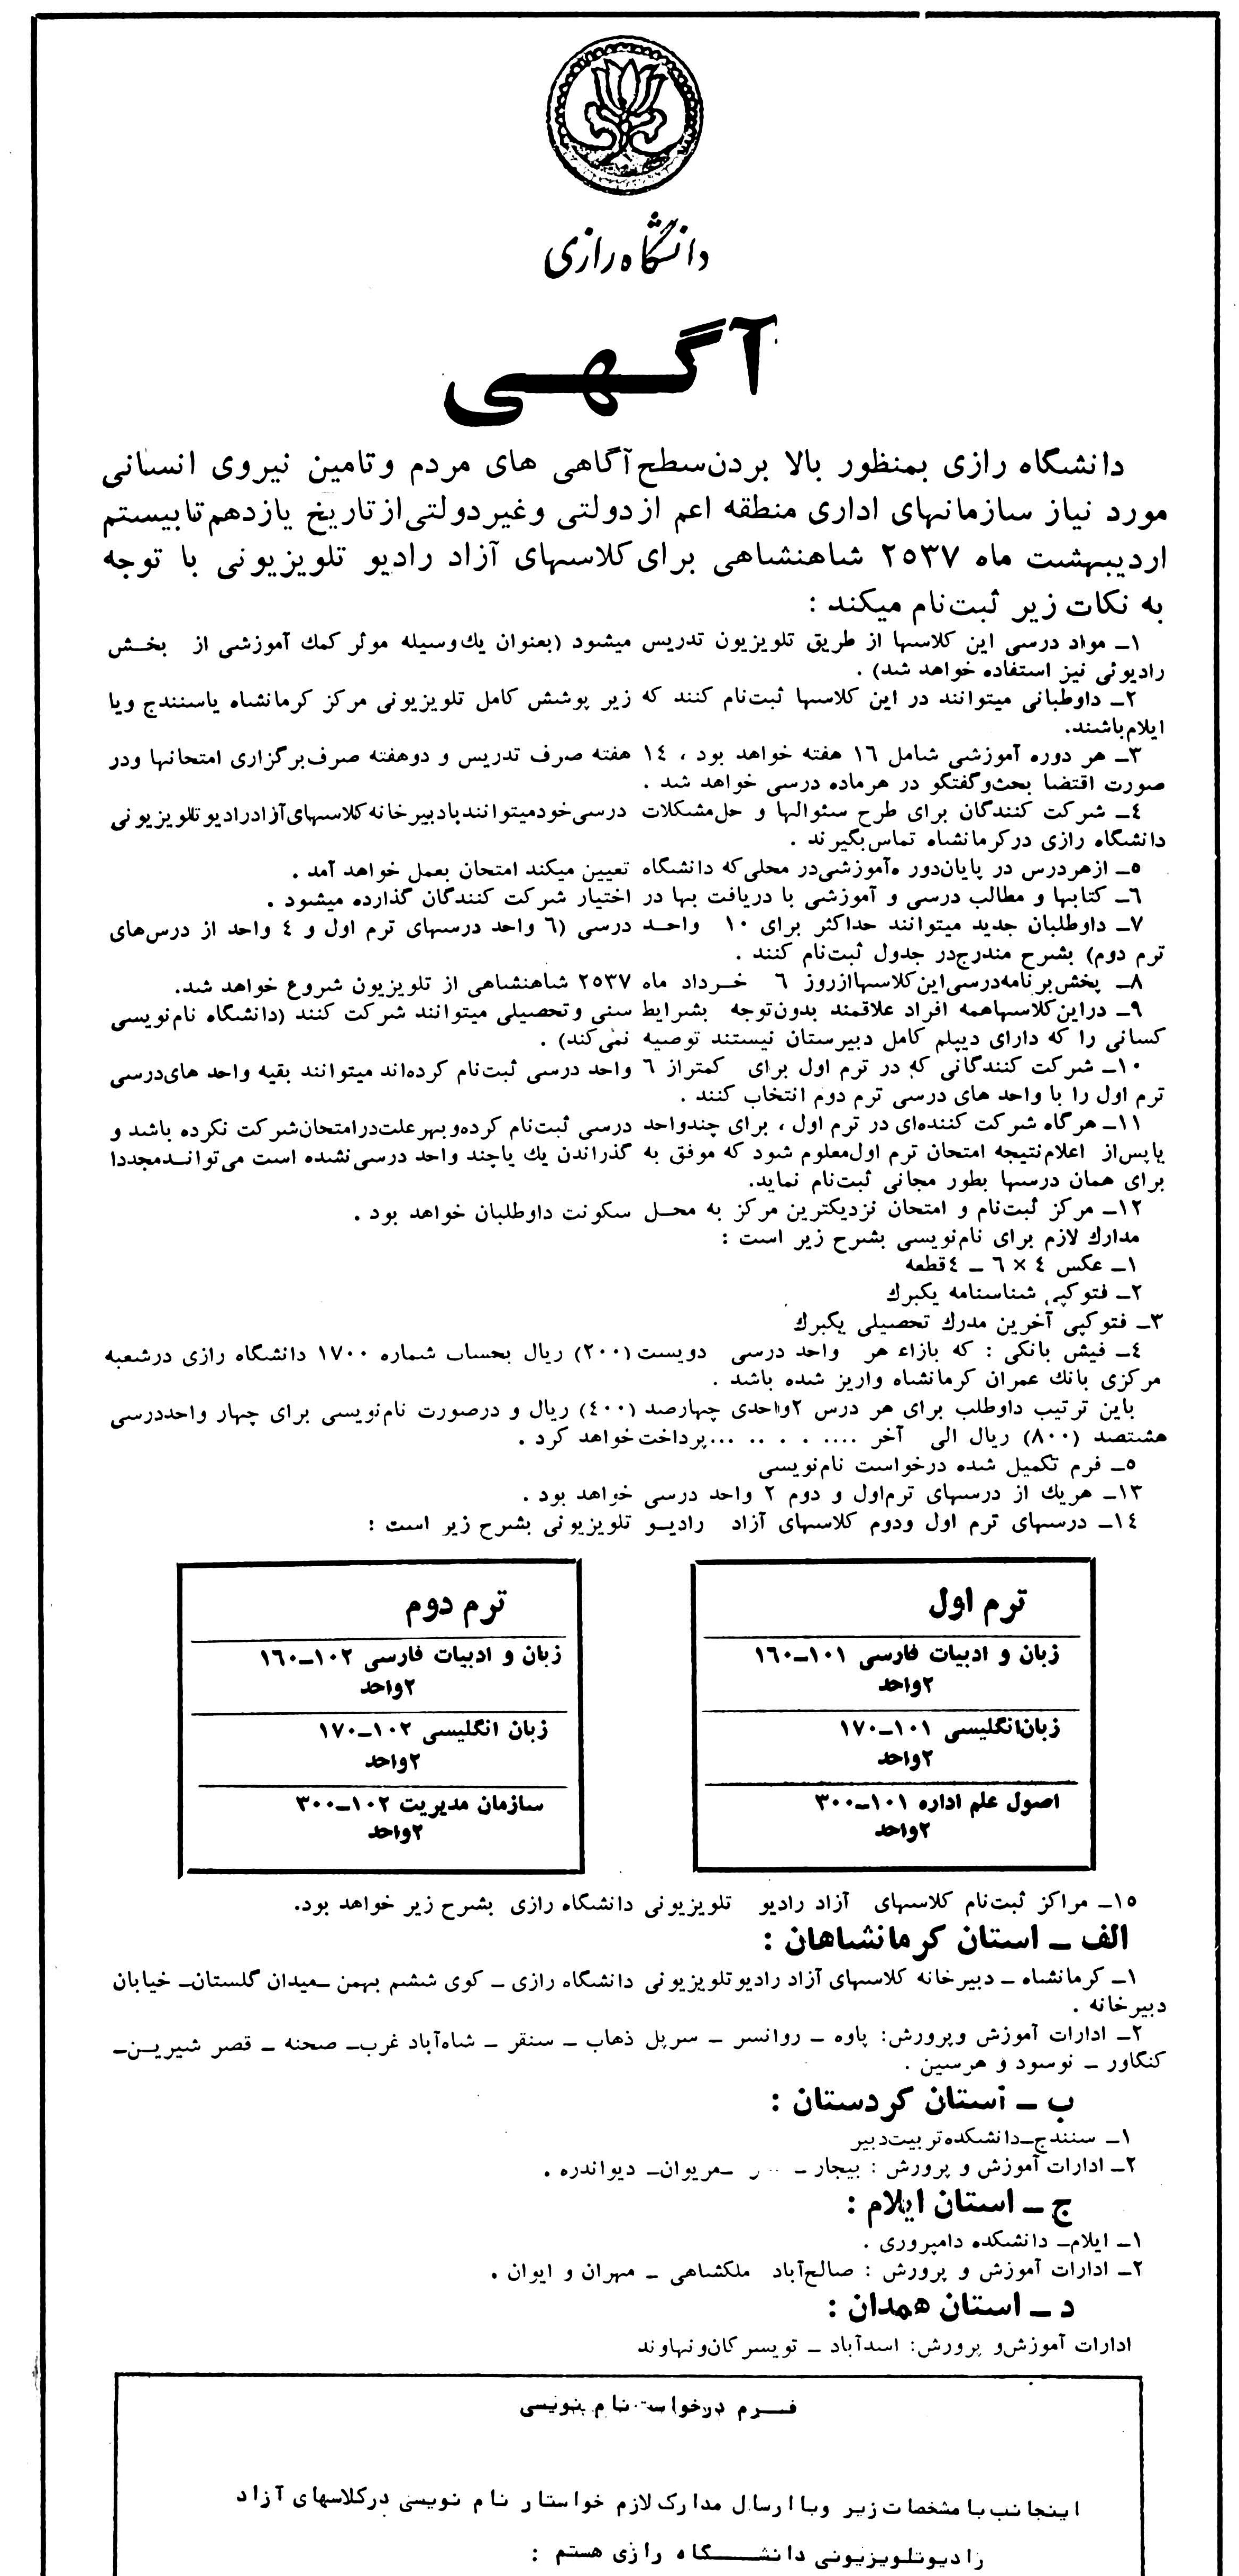 دانشگاه رازی
آگهی
دانشگاه رازی بمنظور بالا بردن سطح آگاهی های مردم و تامین نیروی انسانی
مورد نیاز سازمانهای اداری منطقه اعم از دولتی و غیر دولتی از تاریخ یازدهم تا بیستم
اردیبهشت ماه ۲۵۳۷ شاهنشاهی برای کلاسهای آزاد رادیو تلویزیونی با توجه
به نکات زیر ثبت نام میکند :
۱ـ مواد درسی این کلاسها از طریق تلویزیون تدریس میشود (بعنوان یك وسیله موثر کمك آموزشی از بخش
رادیوئی نیز استفاده خواهد شد) .
۲ـ داوطبانی میتوانند در این کلاسها ثبت نام کنند که زیر پوشش کامل تلویزیونی مرکز کرمانشاه یاسنندج ویا
ایلام باشند.
۳ـ هر دوره آموزشی شامل ۱۶ هفته خواهد بود ، ۱۴ هفته صرف تدریس و دوهفته صرف برگزاری امتحانها ودر
صورت اقتضا بحث و گفتگو در هرماده درسی خواهد شد .
۴ـ شرکت کنندگان برای طرح سئوالها و حل مشکلات درسی خود میتوانند با دبیرخانه کلاسهای آزاد رادیو تلویزیونی
دانشگاه رازی در کرمانشاه تماس بگیرند .
۵ـ از هر درس در پایان دوره آموزشی در محلی که دانشگاه تعیین میکند امتحان بعمل خواهد آمد .
۶ـ کتابها و مطالب درسی و آموزشی با دریافت بها در اختیار شرکت کنندگان گذارده میشود .
۷ـ داوطلبان جدید میتوانند حداکثر برای ۱۰ واحد درسی (۶ واحد درسهای ترم اول و ۴ واحد از درس‌های
ترم دوم) بشرح مندرج در جدول ثبت نام کنند .
۸ـ پخش برنامه درسی این کلاسها از روز ۶ خرداد ماه ۲۵۳۷ شاهنشاهی از تلویزیون شروع خواهد شد.
۹ـ در این کلاسها همه افراد علاقمند بدون توجه بشرایط سنی و تحصیلی میتوانند شرکت کنند (دانشگاه نام نویسی
کسانی را که دارای دیپلم کامل دبیرستان نیستند توصیه نمی‌کند) .
۱۰ـ شرکت کنندگانی که در ترم اول برای کمتر از ۶ واحد درسی ثبت نام کرده‌اند میتوانند بقیه واحد های درسی
ترم اول را با واحد های درسی ترم دوم انتخاب کنند .
۱۱ـ هرگاه شرکت کننده‌ای در ترم اول ، برای چند واحد درسی ثبت نام کرده و بهر علت در امتحان شرکت نکرده باشد و
یا پس از اعلام نتیجه امتحان ترم اول معلوم شود که موفق به گذراندن یك یا چند واحد درسی نشده است می‌تواند مجددا
برای همان درسها بطور مجانی ثبت نام نماید.
۱۲ـ مرکز ثبت نام و امتحان نزدیکترین مرکز به محل سکونت داوطلبان خواهد بود .
مدارك لازم برای نام نویسی بشرح زیر است :
۱ـ عکس ۴ × ۶ ـ ۴ قطعه
۲ـ فتوکپی شناسنامه یکبرك
۳ـ فتوکپی آخرین مدرك تحصیلی یکبرك
۴ـ فیش بانکی : که بازاء هر واحد درسی دویست (۲۰۰) ریال بحساب شماره ۱۷۰۰ دانشگاه رازی در شعبه
مرکزی بانك عمران کرمانشاه واریز شده باشد .
باین ترتیب داوطلب برای هر درس ۲واحدی چهارصد (۴۰۰) ریال و در صورت نام نویسی برای چهار واحد درسی
هشتصد (۸۰۰) ریال الی آخر .... . . .. ... پرداخت خواهد کرد .
۵ـ فرم تکمیل شده درخواست نام نویسی
۱۳ـ هریك از درسهای ترم اول و دوم ۲ واحد درسی خواهد بود .
۱۴ـ درسهای ترم اول ودوم کلاسهای آزاد رادیو تلویزیونی بشرح زیر است :
ترم اول
زبان و ادبیات فارسی ۱۰۱ـ۱۶۰
۲واحد
زبان انگلیسی ۱۰۱ـ۱۷۰
۲واحد
اصول علم اداره ۱۰۱ـ۳۰۰
۲واحد
ترم دوم
زبان و ادبیات فارسی ۱۰۲ـ۱۶۰
۲واحد
زبان انگلیسی ۱۰۲ـ۱۷۰
۲واحد
سازمان مدیریت ۱۰۲ـ۳۰۰
۲واحد
۱۵ـ مراکز ثبت نام کلاسهای آزاد رادیو تلویزیونی دانشگاه رازی بشرح زیر خواهد بود.
الف ـ استان کرمانشاهان :
۱ـ کرمانشاه ـ دبیرخانه کلاسهای آزاد رادیو تلویزیونی دانشگاه رازی ـ کوی ششم بهمن ـ میدان گلستان ـ خیابان
دبیرخانه .
۲ـ ادارات آموزش وپرورش: پاوه ـ روانسر ـ سرپل ذهاب ـ سنقر ـ شاه‌آباد غرب ـ صحنه ـ قصر شیرین ـ
کنگاور ـ نوسود و هرسین .
ب ـ استان کردستان :
۱ـ سنندج ـ دانشکده تربیت دبیر
۲ـ ادارات آموزش و پرورش : بیجار ـ ـ مریوان ـ دیواندره .
ج ـ استان ایلام :
۱ـ ایلام ـ دانشکده دامپروری .
۲ـ ادارات آموزش و پرورش : صالح‌آباد ملکشاهی ـ مهران و ایوان .
د ـ استان همدان :
ادارات آموزش و پرورش: اسدآباد ـ تویسرکان و نهاوند
فرم درخواست نام نویسی
اینجانب با مشخصات زیر وبا ارسال مدارک لازم خواستار نام نویسی درکلاسهای آزاد
رادیوتلویزیونی دانشگاه رازی هستم :